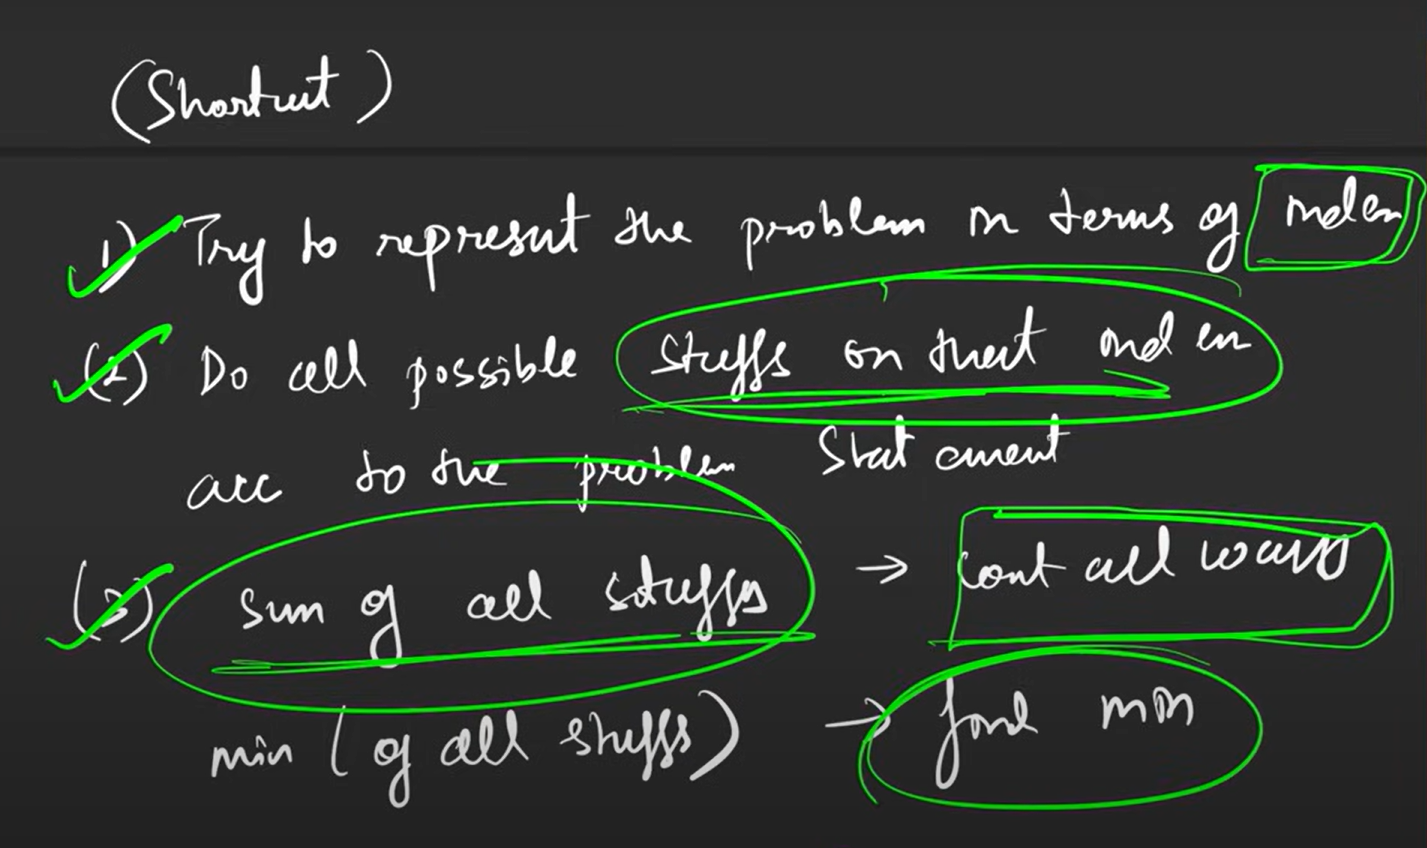 (Shortcut)
1) Try to represent the problem in terms of index
(2) Do all possible stuffs on that index
acc to the problem Statement
(3) sum of all stuffs → count all ways
min (of all stuffs) → find min